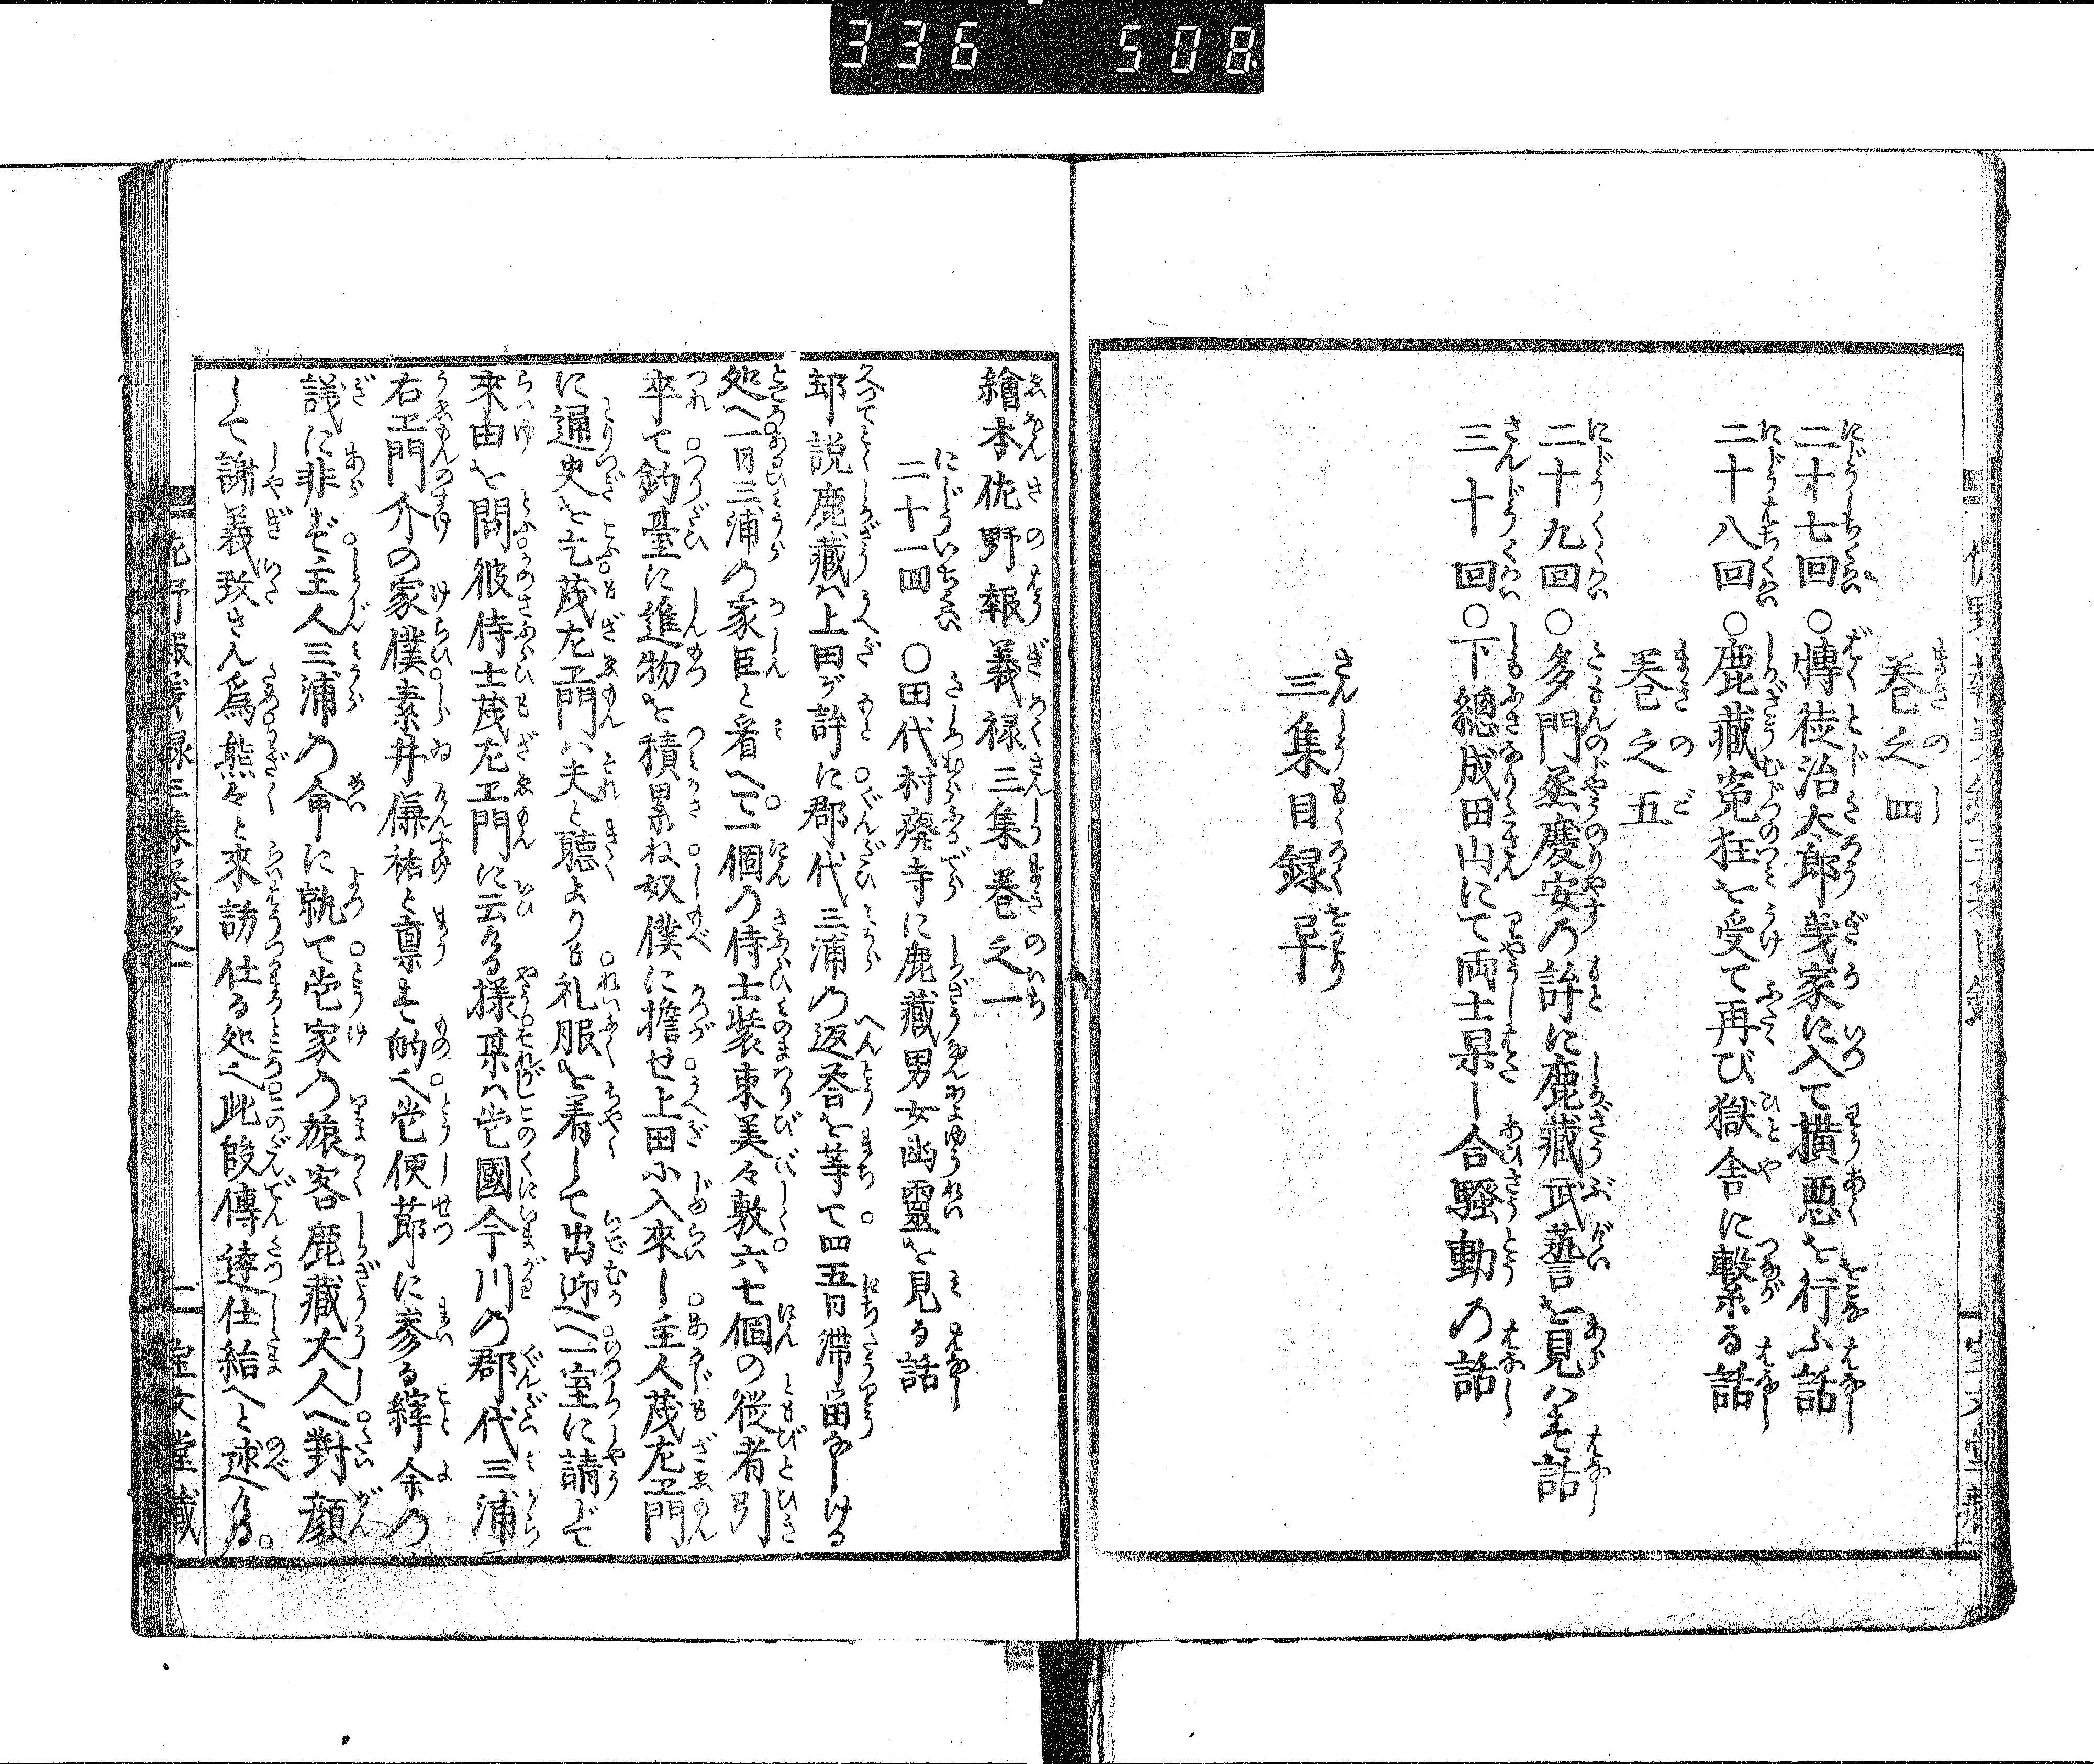 336 508
巻之四
二十七回 ○博徒治太郎義家に入て横悪を行ふ話
二十八回 ○鹿藏寃狂を受て再び獄舎に繋る話
巻之五
二十九回 ○多門丞慶安の許に鹿藏武藝を見はす話
三十回 ○下總成田山にて両士果し合騒動の話
三集目録畢
繪本佐野報義禄三集巻之一
二十一回 ○田代村癈寺に鹿藏男女幽靈を見る話
却説鹿藏ハ上田が許に郡代三浦の返荅を等て四五日滞畄なしける
処へ一日三浦の家臣と看へて二個の侍士装束美々敷六七個の従者引
卒て釣臺に進物を積累ね奴僕に擔せ上田に入來し主人茂左エ門
に通史を乞茂左エ門ハ夫と聽よりも礼服を着して出迎へ一室に請じて
來由を問彼侍士茂左エ門に云る様某ハ当國今川の郡代三浦
右エ門介の家僕素井傔祐と禀す的也当便莭に参る縡余の
議に非ず主人三浦の命に執て当家の旅客鹿藏大人へ對顔
して謝義致さん為熊々と來訪仕る処也此段傳達仕給へと述ける。
佐野報義禄三集巻之一 二 堂文堂藏